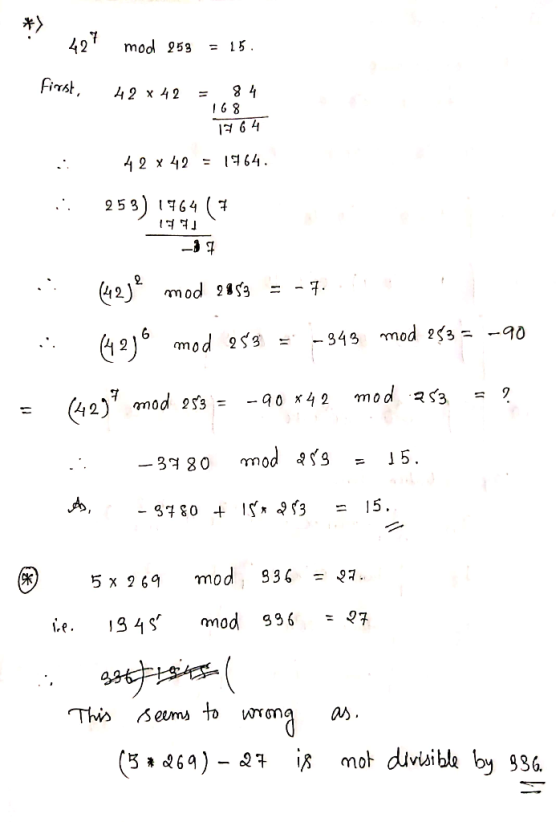 *)
42^7 mod 253 = 15.
First, 42 x 42 = 84
168
1764
∴ 42 x 42 = 1764.
∴ 253) 1764 (7
1771
-7
∴ (42)^2 mod 253 = -7.
∴ (42)^6 mod 253 = -343 mod 253 = -90
= (42)^7 mod 253 = -90 x 42 mod 253 = ?
∴ -3780 mod 253 = 15.
As, -3780 + 15* 253 = 15.
(*) 5 x 269 mod 336 = 27.
i.e. 1345 mod 336 = 27
∴ 336) 1345 (
This seems to wrong as.
(5 * 269) - 27 is not divisible by 336.